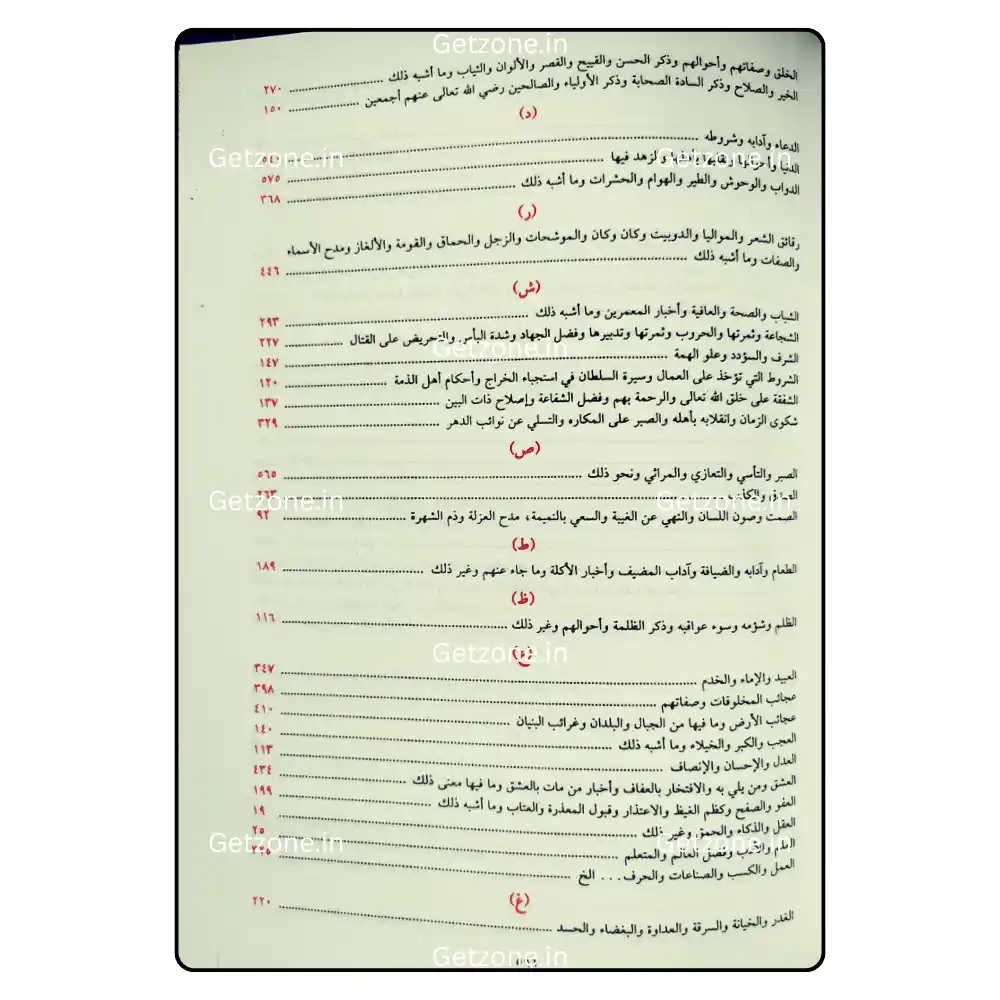 Getzone.in
الخلق وصفاتهم وأحوالهم وذكر الحسن والقبيح والقصر والألوان والثياب وما أشبه ذلك ٢٧٠
الخير والصلاح وذكر السادة الصحابة وذكر الأولياء والصالحين رضي الله تعالى عنهم أجمعين ١٥٠
(د)
الدعاء وآدابه وشروطه
Getzone.in Getzone.in
الدنيا وأحوالها وتقلبها بأهلها والزهد فيها ٥٧٥
الدواب والوحوش والطير والهوام والحشرات وما أشبه ذلك ٣٦٨
(ر)
رقائق الشعر والمواليا والدوبيت وكان وكان والموشحات والزجل والحماق والقومة والألغاز ومدح الأسماء
والصفات وما أشبه ذلك ٤٤٦
(ش)
الشباب والصحة والعافية وأخبار المعمرين وما أشبه ذلك ٢٩٣
الشجاعة وثمرتها والحروب وثمرتها وتدبيرها وفضل الجهاد وشدة البأس والتحريض على القتال ٢٢٧
Getzone.in
الشرف والسؤدد وعلو الهمة ١٤٧
الشروط التي تؤخذ على العمال وسيرة السلطان في استجباء الخراج وأحكام أهل الذمة ١٢٠
الشفقة على خلق الله تعالى والرحمة بهم وفضل الشفاعة وإصلاح ذات البين ١٣٧
شكوى الزمان وانقلابه بأهله والصبر على المكاره والتسلي عن نوائب الدهر ٣٢٩
(ص)
الصبر والتأسي والتعازي والمراثي ونحو ذلك ٥٦٥
الصدق والكذب ٢٦٣
Getzone.in Getzone.in
الصمت وصون اللسان والنهي عن الغيبة والسعي بالنميمة، مدح العزلة وذم الشهرة ٩٢
(ط)
الطعام وآدابه والضيافة وآداب المضيف وأخبار الأكلة وما جاء عنهم وغير ذلك ١٨٩
(ظ)
الظلم وشؤمه وسوء عواقبه وذكر الظلمة وأحوالهم وغير ذلك ١١٦
(ع)
Getzone.in
العبيد والإماء والخدم ٣٤٧
عجائب المخلوقات وصفاتهم ٣٩٨
عجائب الأرض وما فيها من الجبال والبلدان وغرائب البنيان ٤١٠
العجب والكبر والخيلاء وما أشبه ذلك ١٤٠
العدل والإحسان والإنصاف ١١٣
العشق ومن يلي به والافتخار بالعفاف وأخبار من مات بالعشق وما فيها معنى ذلك ٤٣٤
العفو والصفح وكظم الغيظ والاعتذار وقبول المعذرة والعتاب وما أشبه ذلك ١٩٩
العقل والذكاء والحمق وغير ذلك ١٩
العلم والأدب وفضل العالم والمتعلم ٢٥
Getzone.in Getzone.in
العمل والكسب والصناعات والحرف . . . الخ
(غ)
الغدر والخيانة والسرقة والعداوة والبغضاء والحسد ٢٢٠
Getzone.in